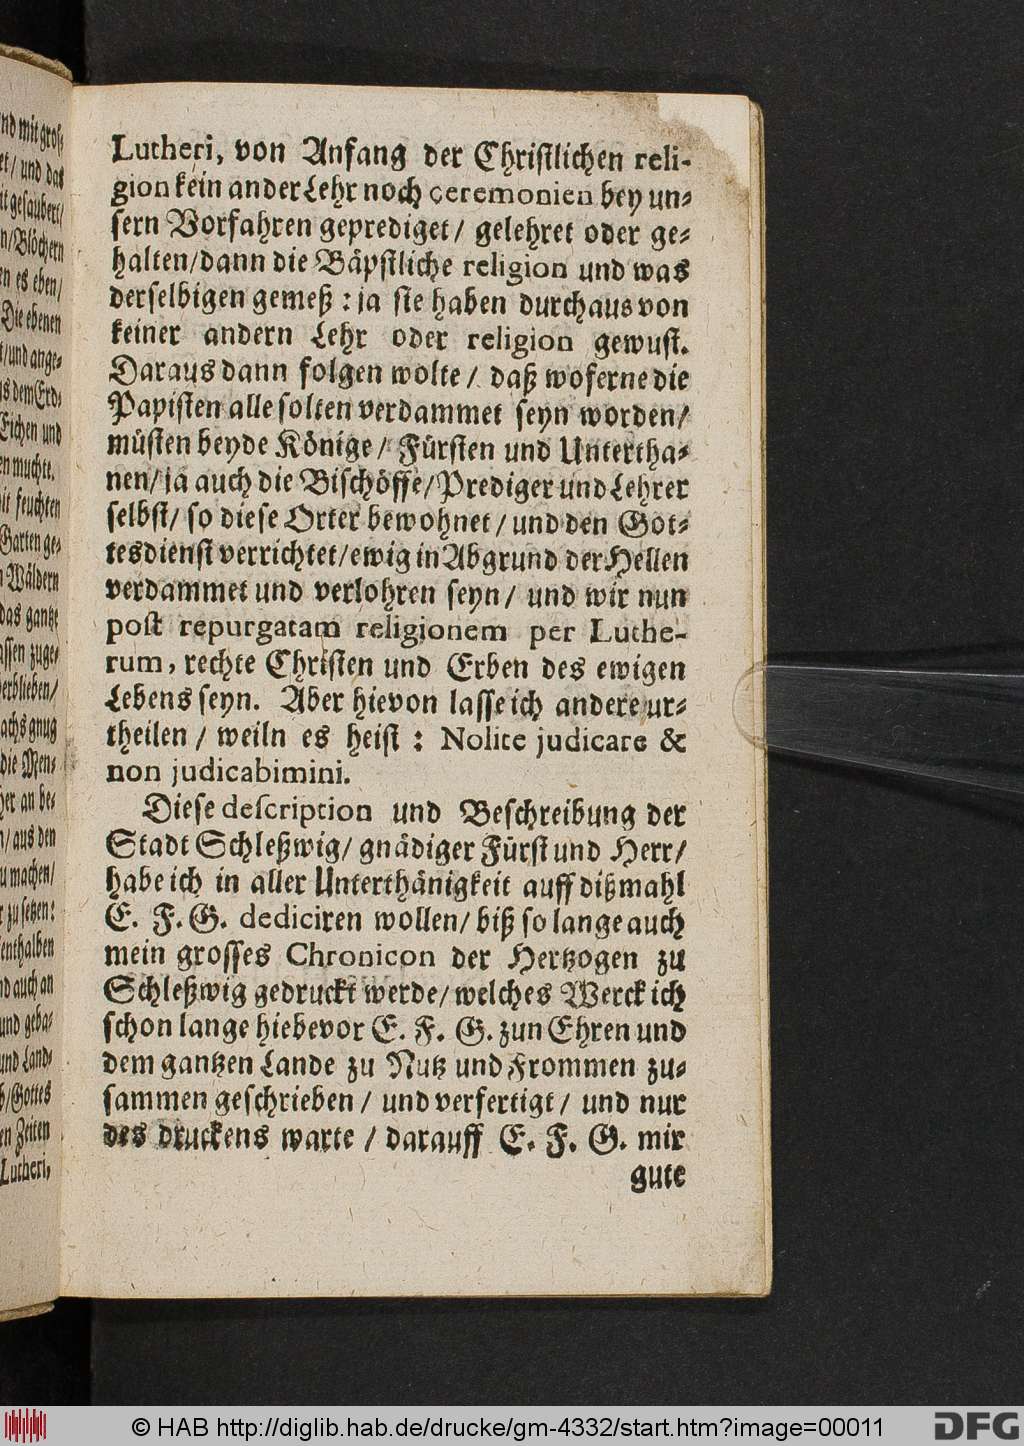 Lutheri, von Anfang der Christlichen reli-
gion kein ander Lehr noch ceremonien bey un-
sern Vorfahren geprediget/ gelehret oder ge-
halten/dann die Bäpstliche religion und was
derselbigen gemeß: ja sie haben durchaus von
keiner andern Lehr oder religion gewust.
Daraus dann folgen wolte/ daß woferne die
Papisten alle solten verdammet seyn worden/
müsten beyde Könige/ Fürsten und Untertha-
nen/ ja auch die Bischöffe/Prediger und Lehrer
selbst/ so diese Orter bewohnet/ und den Got-
tesdienst verrichtet/ewig in Abgrund der Hellen
verdammet und verlohren seyn/ und wir nun
post repurgatam religionem per Luthe-
rum, rechte Christen und Erben des ewigen
Lebens seyn. Aber hievon lasse ich andere ur-
theilen/ weiln es heist: Nolite judicare &
non judicabimini.
Diese description und Beschreibung der
Stadt Schleßwig/ gnädiger Fürst und Herr/
habe ich in aller Unterthänigkeit auff dißmahl
E. F. G. dediciren wollen/ biß so lange auch
mein grosses Chronicon der Hertzogen zu
Schleßwig gedruckt werde/ welches Werck ich
schon lange hiebevor E. F. G. zun Ehren und
dem gantzen Lande zu Nutz und Frommen zu-
sammen geschrieben/ und verfertigt/ und nur
des druckens warte/ darauff E. F. G. mir
gute
© HAB http://diglib.hab.de/drucke/gm-4332/start.htm?image=00011
DFG